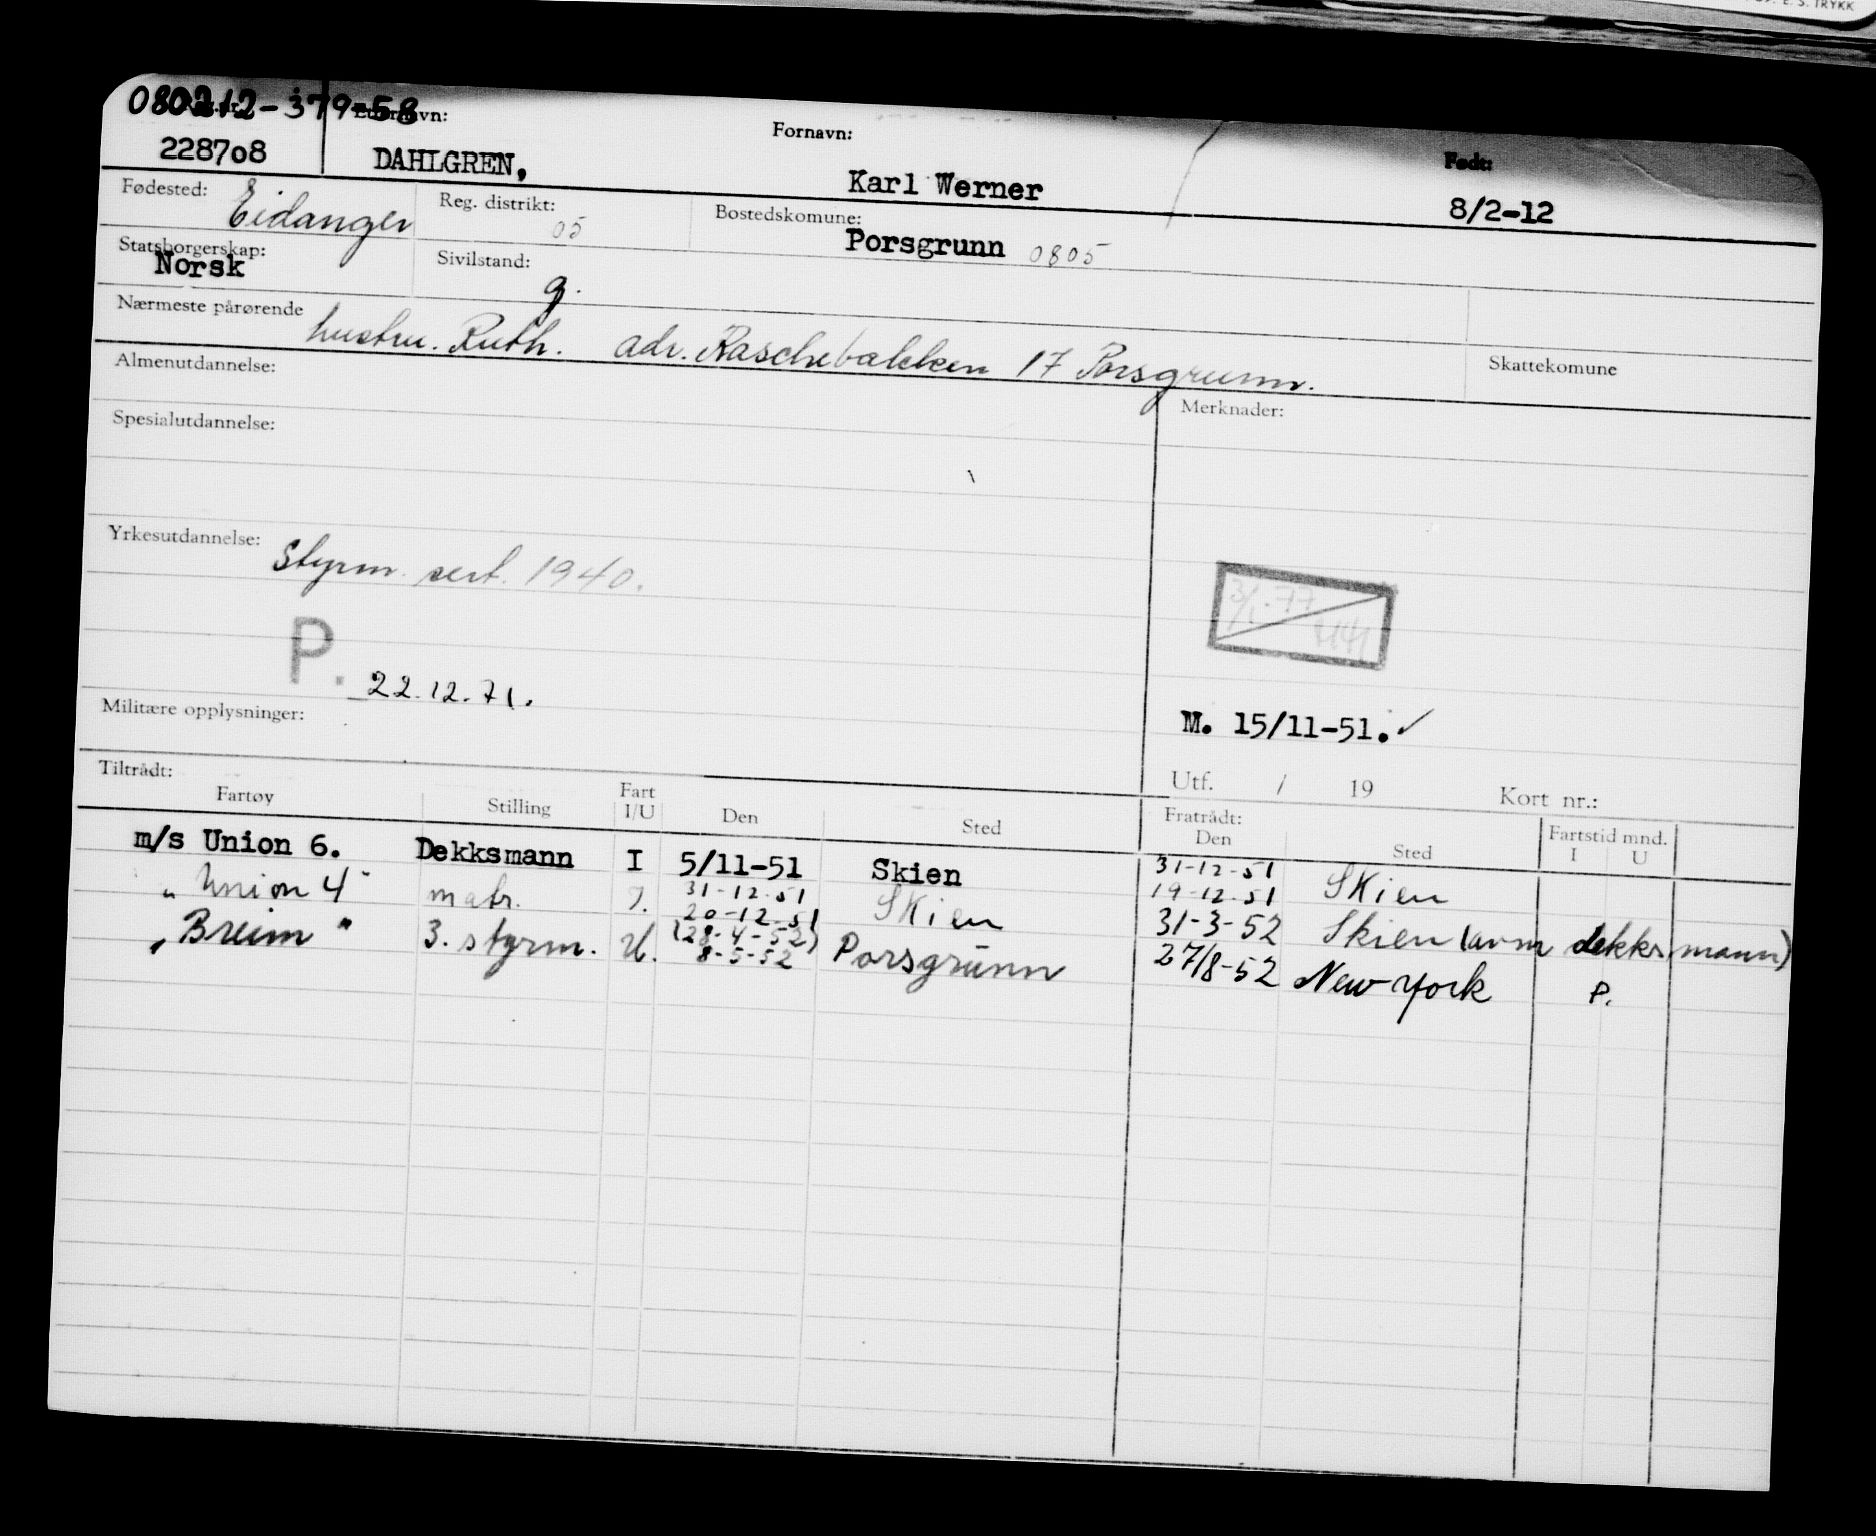 E. S. TRYKK
080212-379-58
Etternavn: Fornavn: Født:
228708 DAHLGREN, Karl Werner 8/2-12
Fødested: Eidanger Reg. distrikt: 05 Bostedskomune: Porsgrunn 0805
Statsborgerskap: Norsk Sivilstand: g.
Nærmeste pårørende hustru. Ruth. adr. Raschebakken 17 Porsgrunn.
Almenutdannelse: Skattekomune
Merknader:
Spesialutdannelse:
Yrkesutdannelse: Styrm. sert. 1940.
3/1-77
P. 22.12.71.
Militære opplysninger: M. 15/11-51. ✓
Tiltrådt: Utf. / 19 Kort nr.:
Fartøy Stilling Fart I/U Den Sted Fratrådt: Den Sted Fartstid mnd. I U
m/s Union 6. Dekksmann I 5/11-51 Skien 31-12-51
19-12-51 Skien
" Union 4" matr. I. 31-12-51 20-12-51 Skien 31-3-52 Skien (avm dekksmann)
" Breim " 3. styrm. U. (28-4-52) 8-5-52 Porsgrunn 27/8-52 New York P.